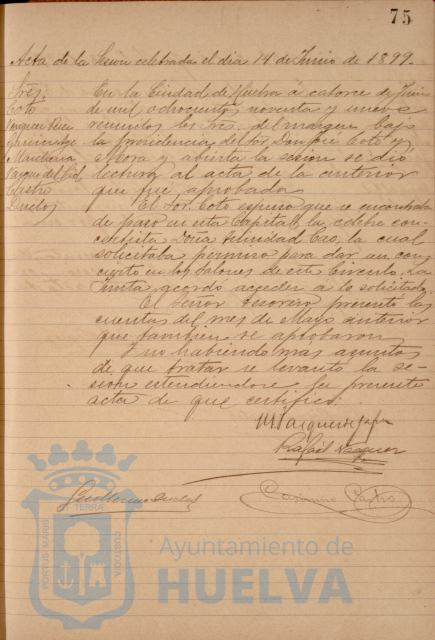 75
Acta de la Sesión celebrada el dia 14 de Junio de 1899.
Sres.
Coto
Marchena
Castro
Duclos
En la Ciudad de Huelva á catorce de Junio
de mil ochocientos noventa y nueve
reunidos los Sres. del margen bajo
la presidencia del Sor. Don José Coto y
Mora y abierta la sesion se dio
lectura al acta de la anterior
que fué aprobada
El Sor. Coto espuso que se encontraba
de paso en esta Capital la celebre con-
certista Doña Trinidad la cual
solicitaba permiso para dar un con-
cierto en los Salones de este Circulo. La
Junta acordó acceder á lo solicitado.
El Señor Tesorero presentó las
cuentas del mes de Mayo anterior
que tambien se aprobaron
Y no habiendo mas asuntos
de que tratar se levantó la se-
sion estendiendose la presente
acta de que certifico.
Rafael
Guillermo Duclos
Castro
PORTUS MARIS
ET TERRÆ
CUSTODIA
Ayuntamiento de
HUELVA